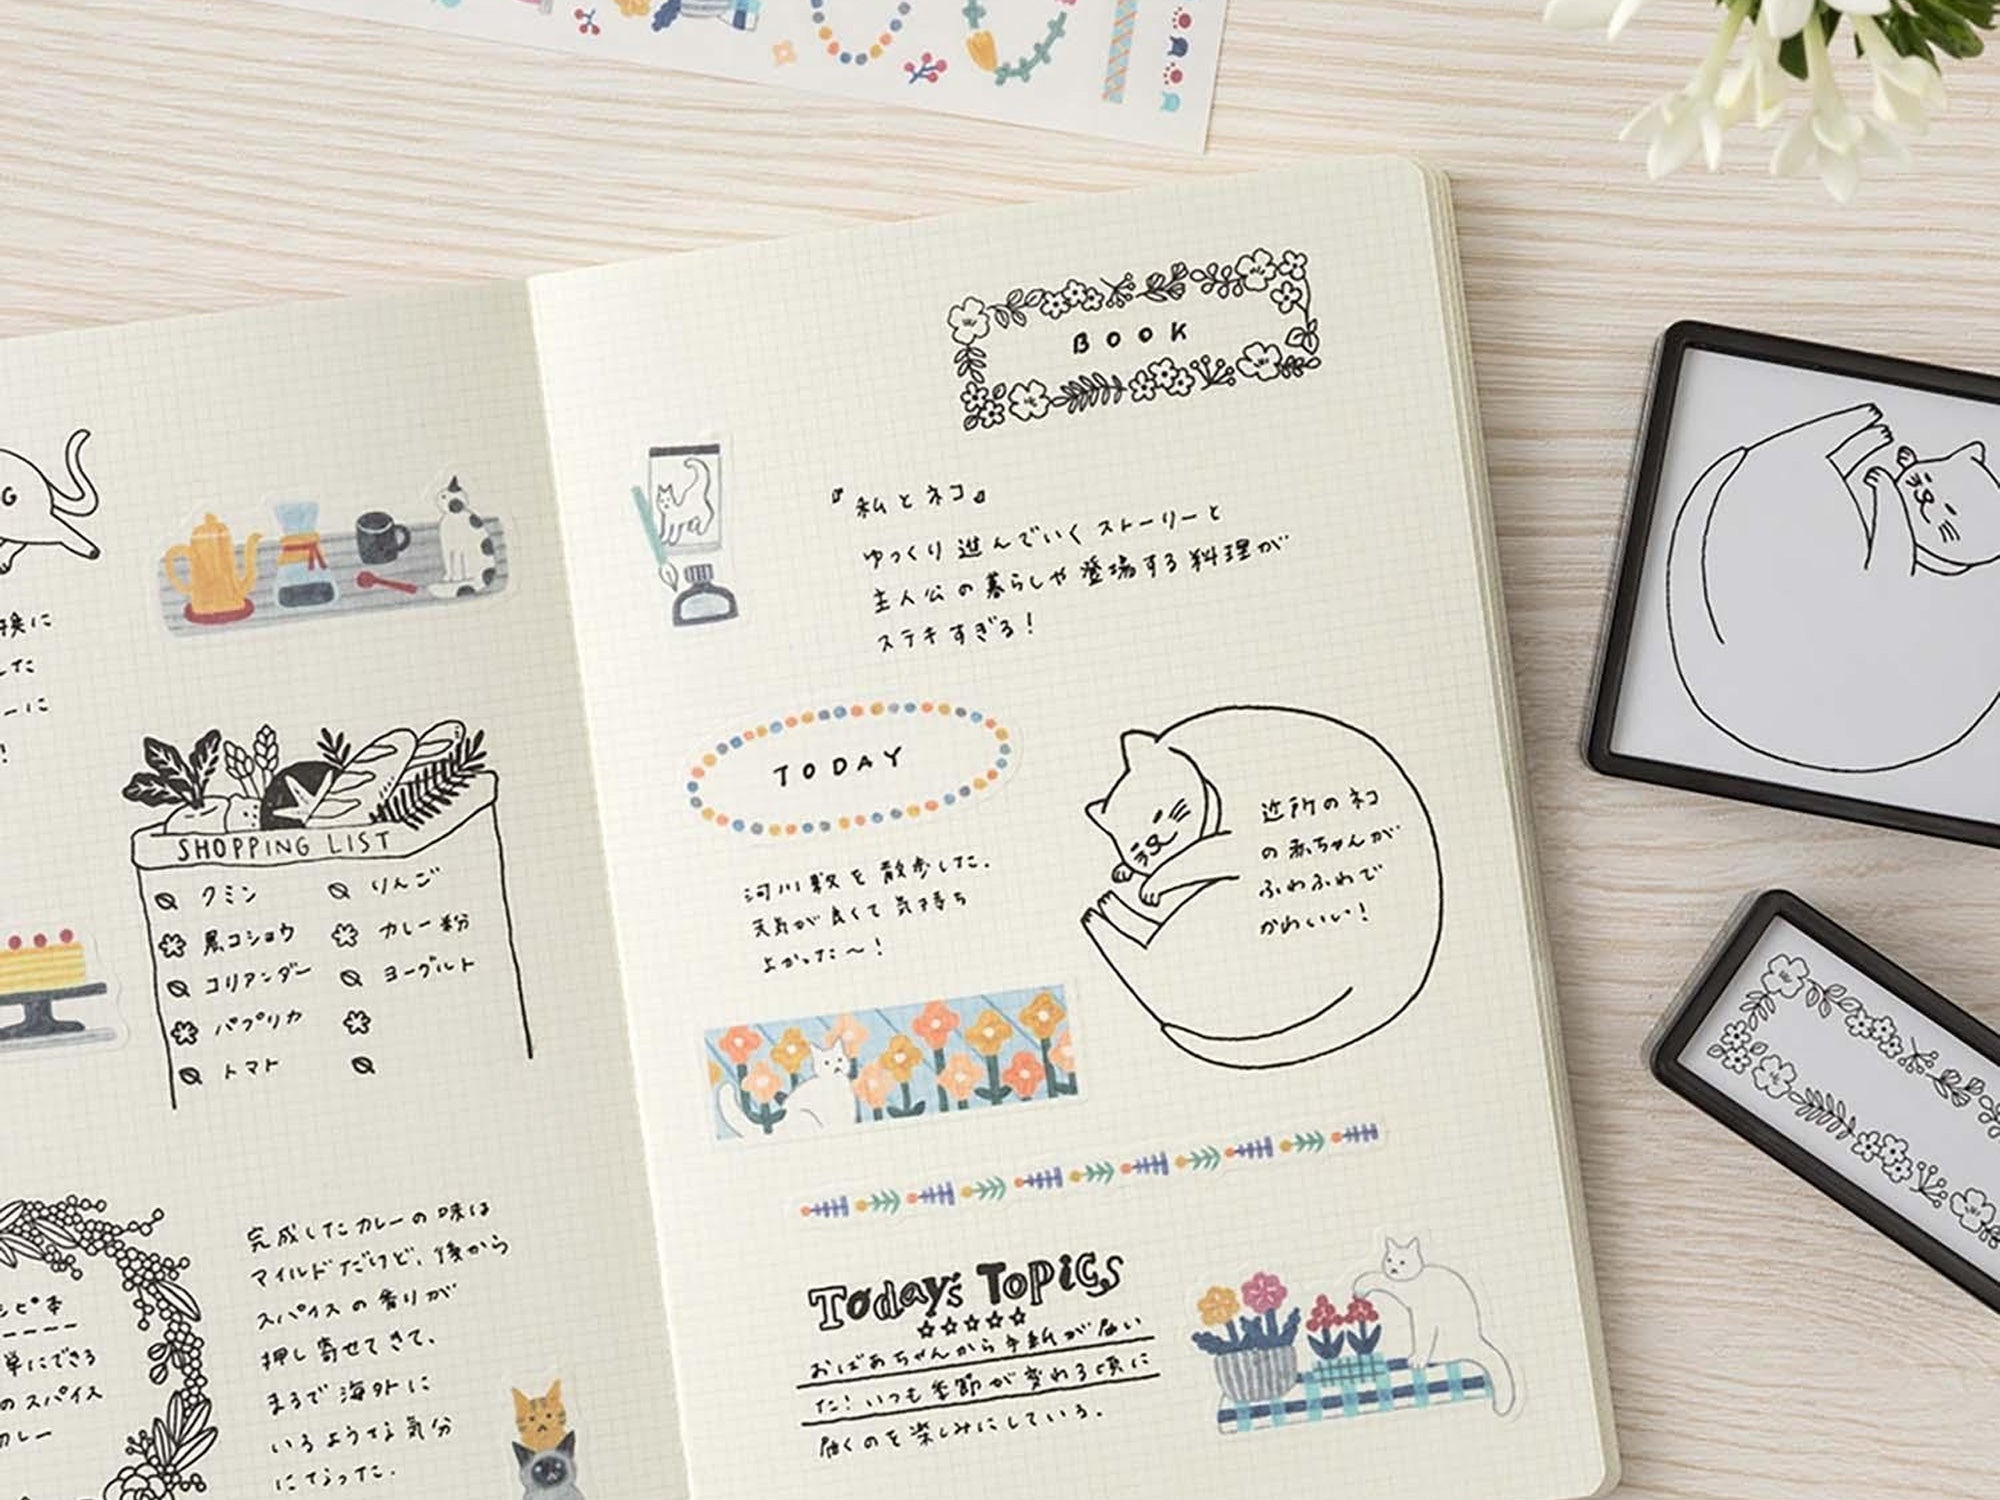 G
換に
した
ーに
!
SHOPPING LIST
クミン
りんご
黒コショウ
カレー粉
コリアンダー
ヨーグルト
パプリカ
トマト
完成したカレーの味は
マイルドだけど、後から
スパイスの香りが
押し寄せてきて、
まるで海外に
いるような気分
になった.
シピ本
単にできる
のスパイス
カレー
BOOK
『私とネコ』
ゆっくり進んでいくストーリーと
主人公の暮らしや登場する料理が
ステキすぎる!
TODAY
河川敷を散歩した.
天気が良くて気持ち
よかった〜!
近所のネコ
の赤ちゃんが
ふわふわで
かわいい!
Today's Topics
おばあちゃんから手紙が届い
た!いつも季節が変わる頃に
届くのを楽しみにしている.